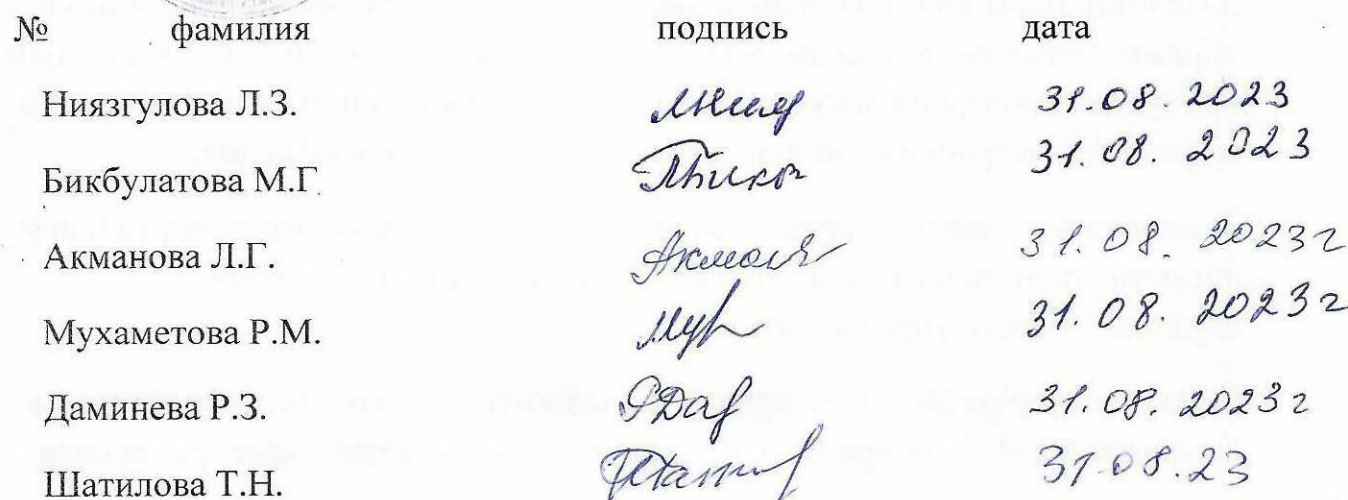 № фамилия подпись дата
Ниязгулова Л.З. 31.08.2023
Бикбулатова М.Г. 31.08.2023
Акманова Л.Г. 31.08.2023г
Мухаметова Р.М. 31.08.2023г
Даминева Р.З. 31.08.2023г
Шатилова Т.Н. 31.08.23